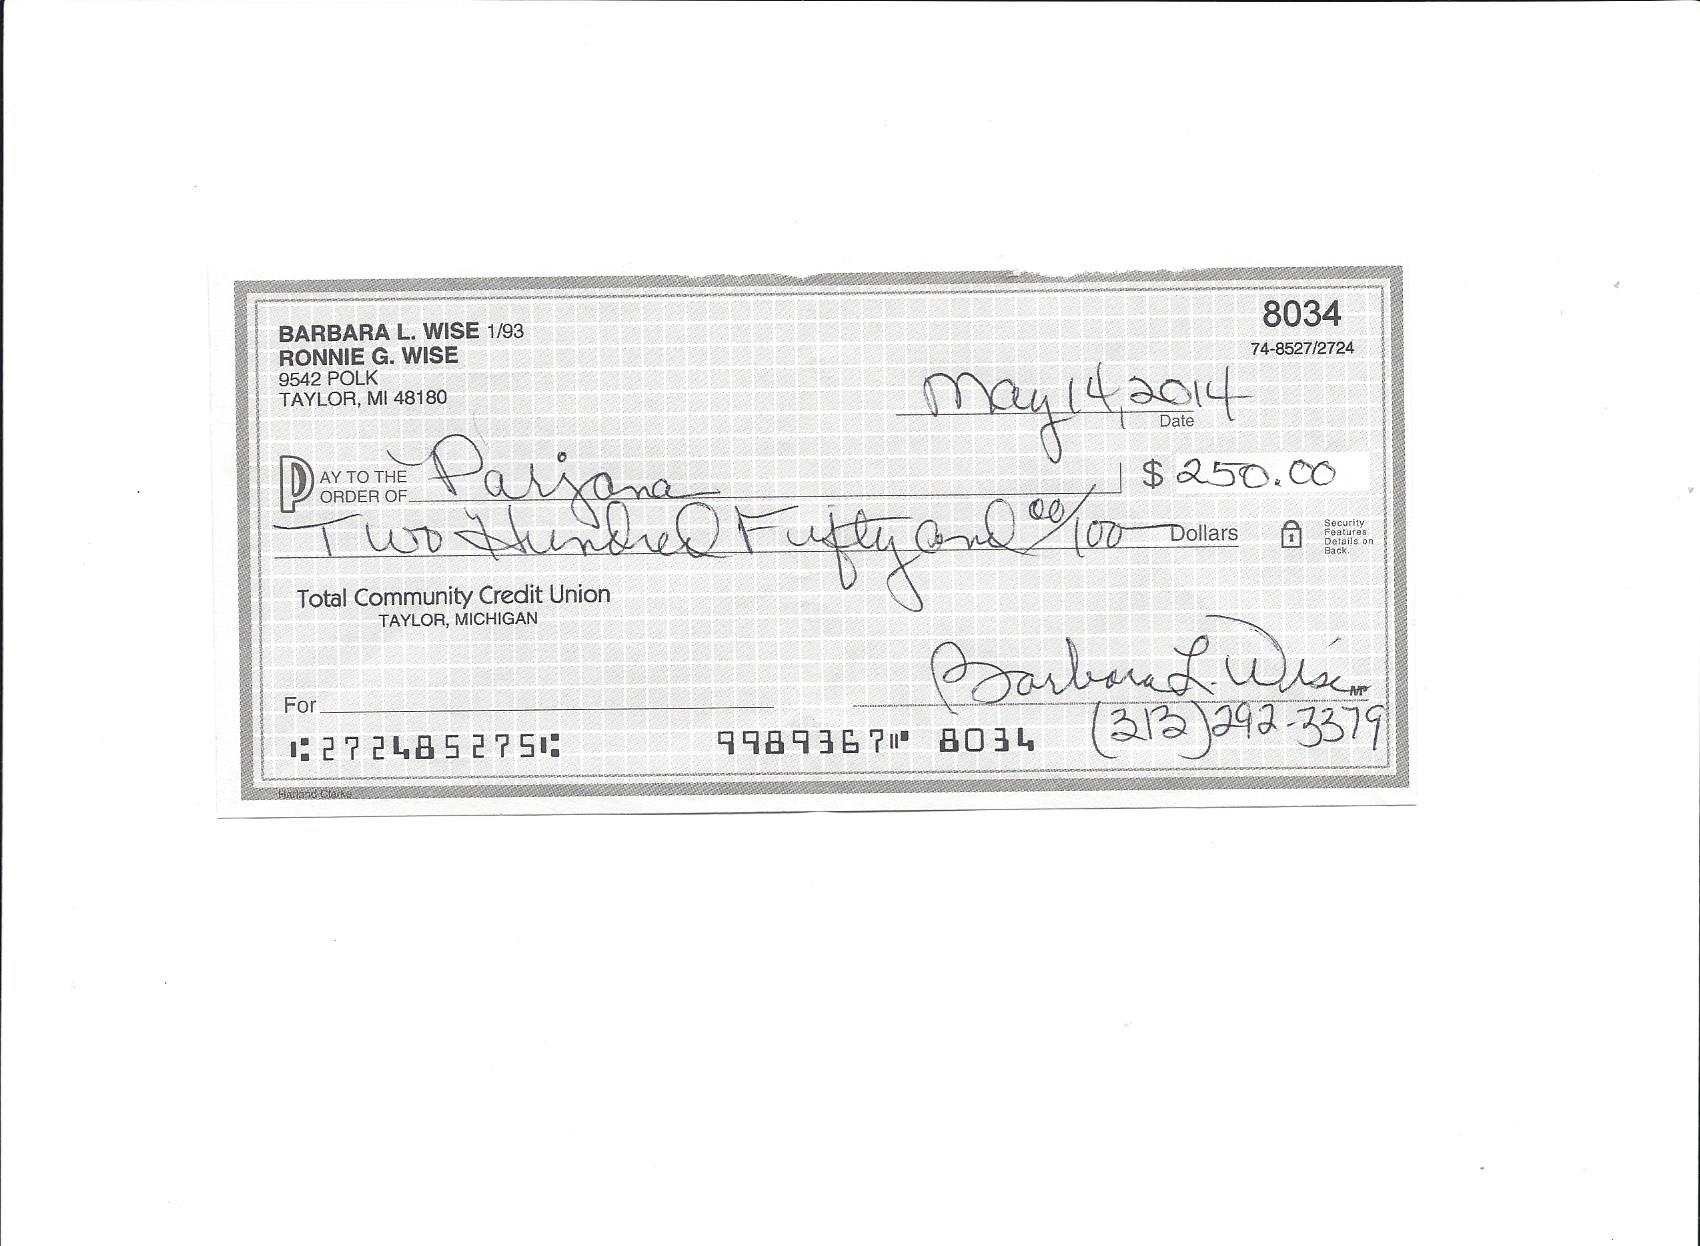 BARBARA L. WISE 1/93
RONNIE G. WISE
9542 POLK
TAYLOR, MI 48180
8034
74-8527/2724
May 14, 2014
Date
PAY TO THE
ORDER OF Parjana $ 250.00
Two Hundred Fifty and 00/100 Dollars
Security
Features
Details on
Back.
Total Community Credit Union
TAYLOR, MICHIGAN
For
Barbara L. Wise
MP
(313)292-3379
⑆272485275⑆ 9989367⑈ 8034
Harland Clarke